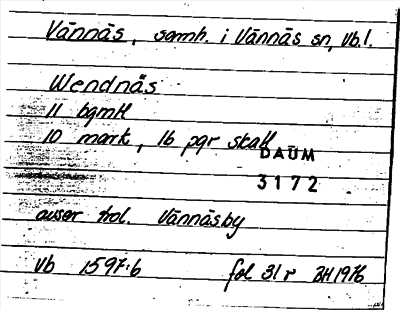 Vännäs, samh. i Vännäs sn, Vb.l.
Wendnäs
11 bgmH
10 mark, 16 pgr skatt
DAUM
3172
avser trol. Vännäsby
Vb 1597:6 fol 31 r BH 1976